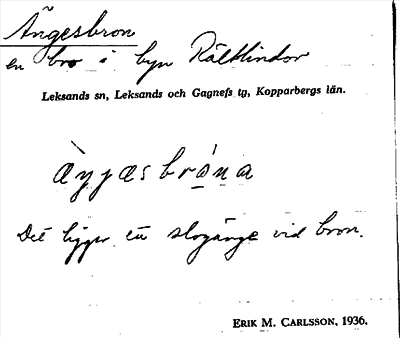 Ängesbron
en bro i byn Rältlindor
Leksands sn, Leksands och Gagnefs tg, Kopparbergs län.
Det ligger en slogänge vid bron.
ERIK M. CARLSSON, 1936.